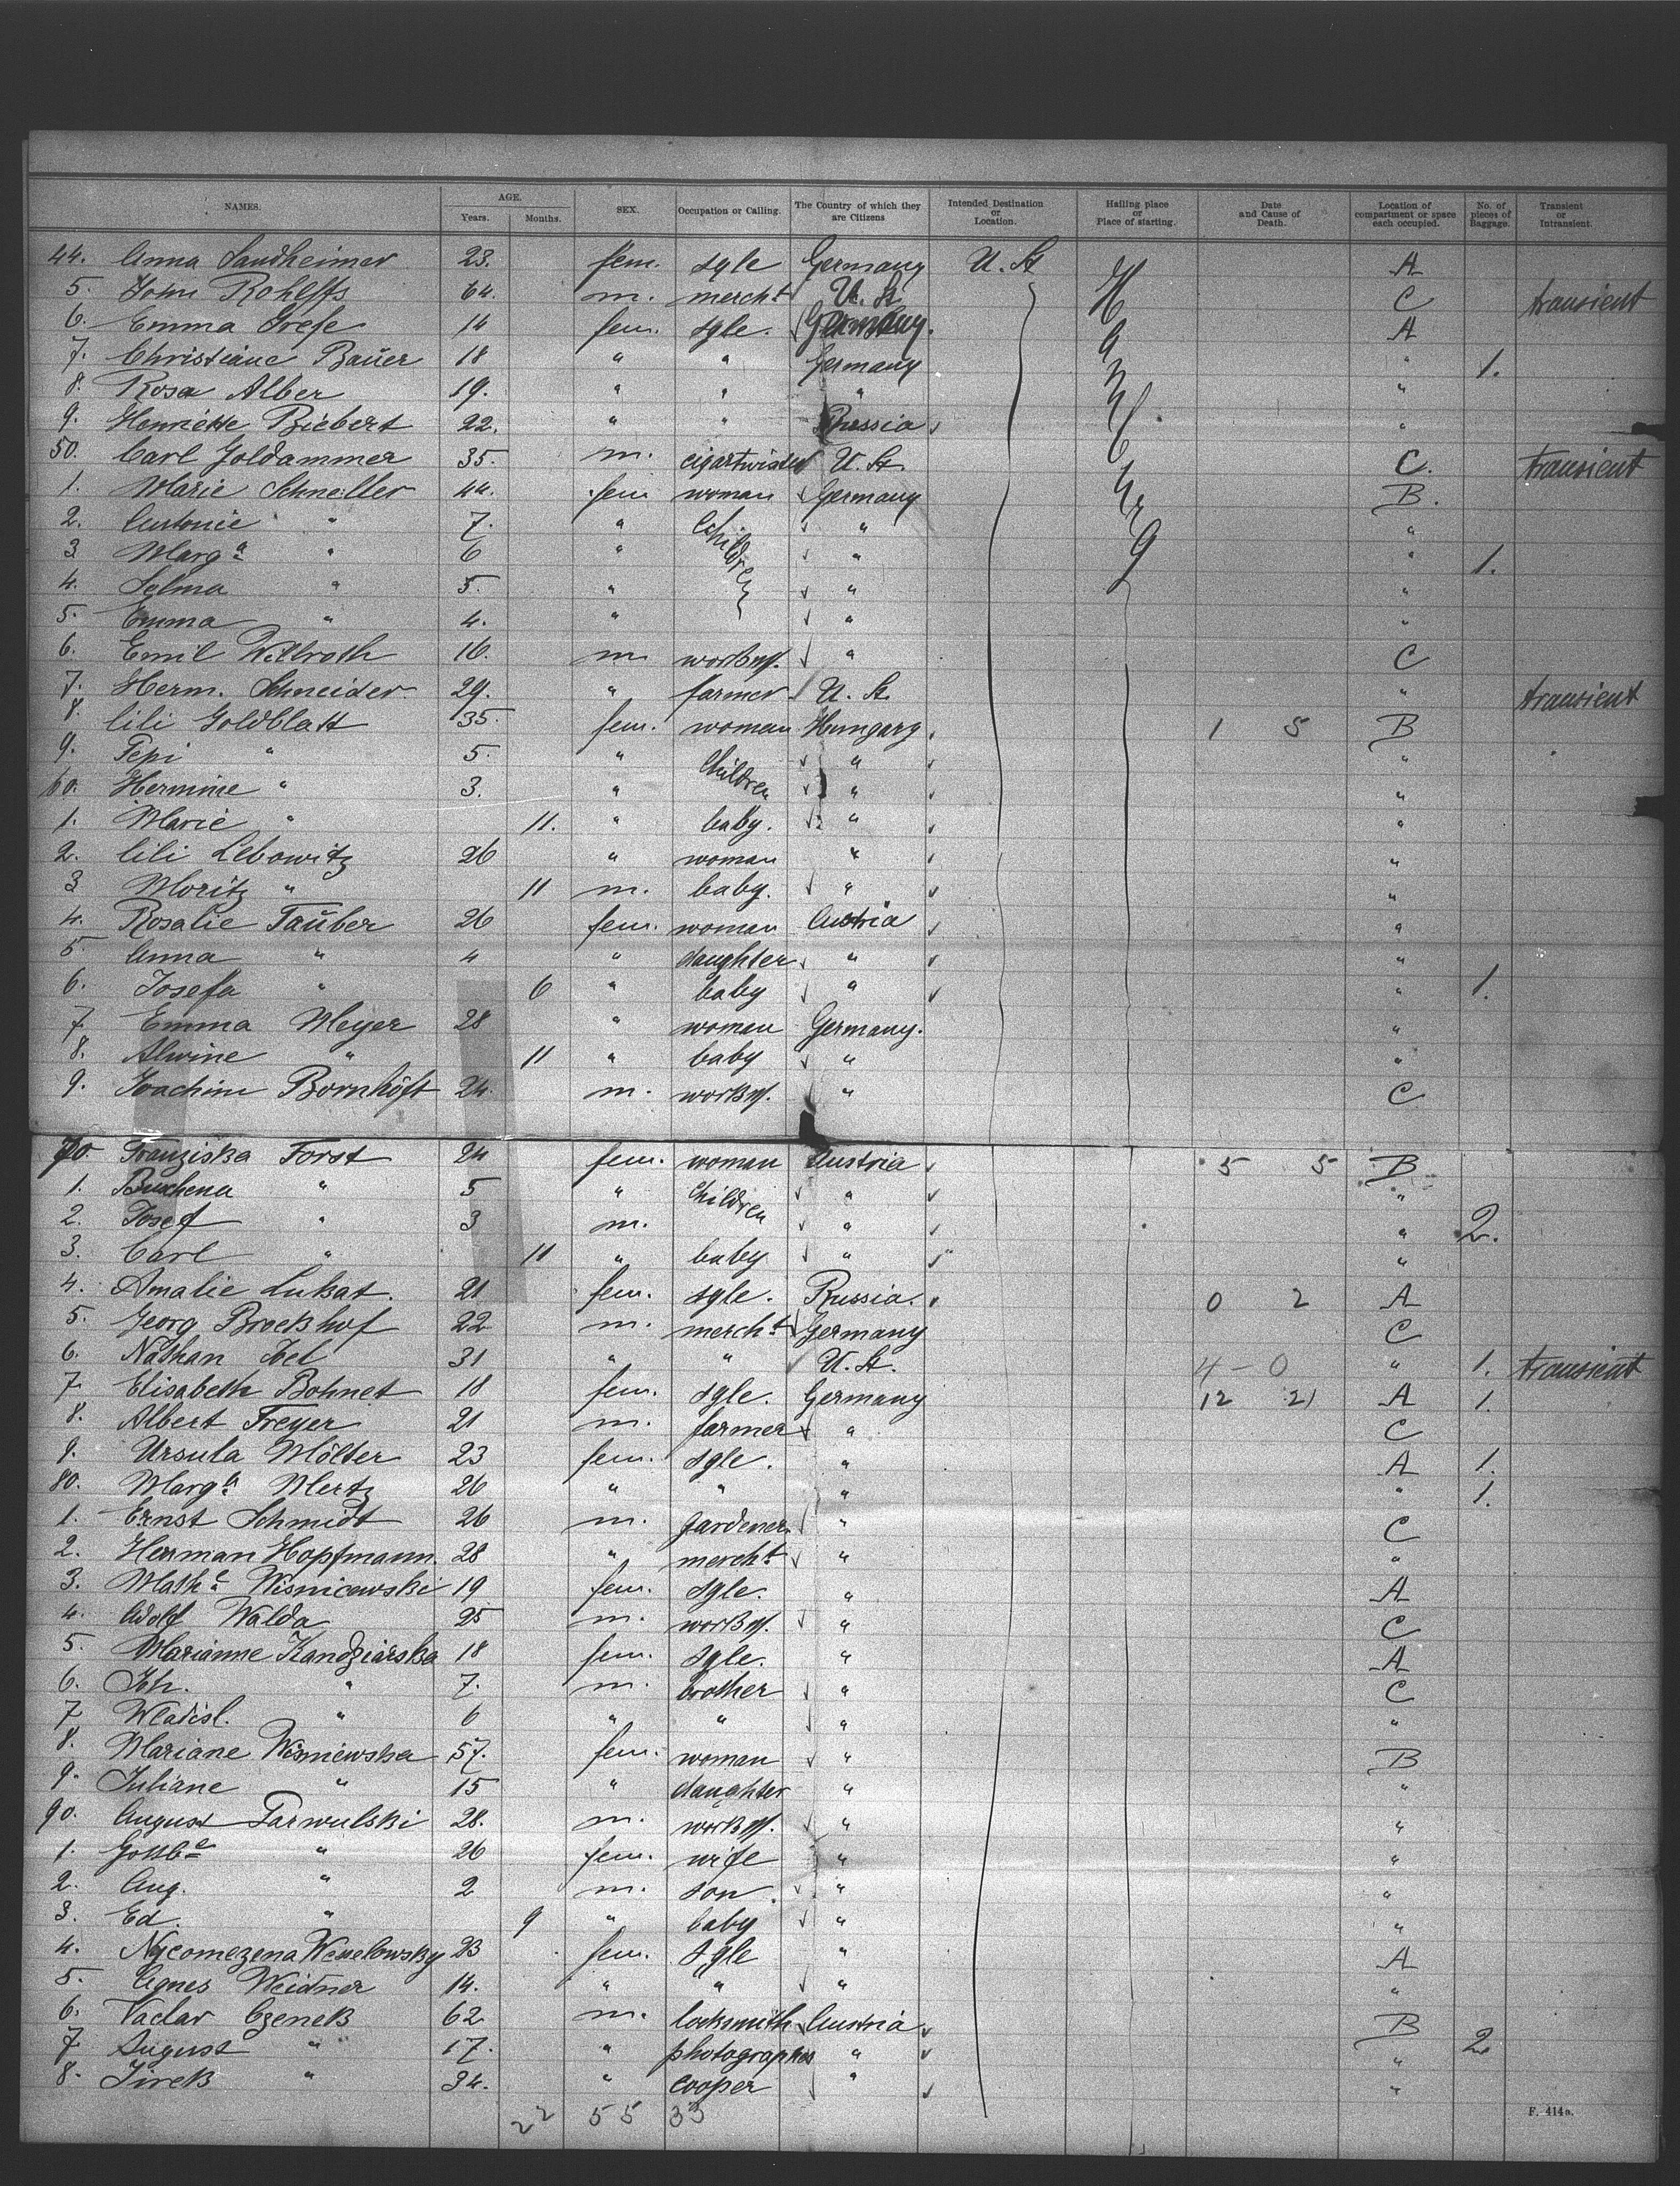 NAMES. AGE. Years. Months. SEX. Occupation or Calling. The Country of which they are Citizens Intended Destination or Location. Hailing place or Place of starting. Date and Cause of Death. Location of compartment or space each occupied. No. of pieces of Baggage. Transient or Intransient.
44. Anna Sandheimer 23. fem. sgle Germany U. St A
5. John Rohlffs 64. m. mercht U. St. C transient
6. Emma Grefe 14 fem. sgle. Germany. A
7. Christiane Baŭer 18 " " Germany " 1.
8. Rosa Alber 19. " " " "
9. Henriette Biebert 22. " " Russia "
50. Carl Goldammer 35. m. cigartwister U. St. C. transient
1. Marie Schneller 44. fem woman Germany B.
2. Antonie " 7. " Children " "
3 Marga " 6 " " " 1.
4. Selma " 5. " " "
5. Emma " 4. " " "
6. Emil Wellroth 16. m workm. " C
7. Herm. Schneider 29. " farmer U. St. " transient
8. Cili Goldblatt 35. fem. woman Hungary. 1 5 B
9. Pepi " 5. " Children " "
60. Hermine " 3. " " "
1. Marie " 11. " baby. " "
2. Cili Lebowitz 26 " woman " "
3 Moritz " 11 m. baby. " "
4. Rosalie Taŭber 26 fem. woman Austria "
5 Anna " 4 " daughter " "
6. Josefa " 6 " baby " " 1.
7 Emma Meyer 28 " woman Germany. "
8. Alwine " 11 " baby " "
9. Joachim Bornhöft 24. m. workm. " C
70. Franziska Forst 24 fem. woman Austria 5 5 B
1. " 5 " Children " "
2. Josef " 3 m. " " 2.
3. Carl " 11 " baby " "
4. Amalie Lukat. 21 fem. sgle. Russia. 0 2 A
5. Georg Brockhof 22 m. mercht Germany C
6. Nathan 31 " " U. St. 4 - 0 " 1. transient
7 Elisabeth Bohnet 18 fem. sgle. Germany 12 21 A 1.
8. Albert Freyer 21 m. farmer " C
9. Ursula Mölter 23 fem. sgle. " A 1.
80. Marga Mertz 26 " " " " 1.
1. Ernst Schmidt 26 m. gardener " C
2. Herman Hopfmann. 28 " mercht " "
3. Mathe Wisnicowski 19 fem. sgle. " A
4. Adolf Walda 25 m. workm. " C
5. Marianne Kandziarska 18 fem. sgle. " A
6. Joh. " 7. m. brother " C
7 Wladisl. " 6 " " " "
8. Mariane Wisniewska 57. fem. woman " B
9. Juliane " 15 " daughter " "
90. August Parwulski 28. m. workm. " "
1. Gottbe " 26 fem. wife " "
2. Aug. " 2 m. son " "
3. Ed. " 9 " baby " "
4. Nycomezena Wesselowsky 23 fem. sgle " A
5. Agnes Weidner 14. " " " "
6. Vaclav Czenek 62 m. locksmith Austria B
7 August " 17. " photographer " " 2
8. Jirek " 34. " cooper " "
22 55 33
F. 414a.